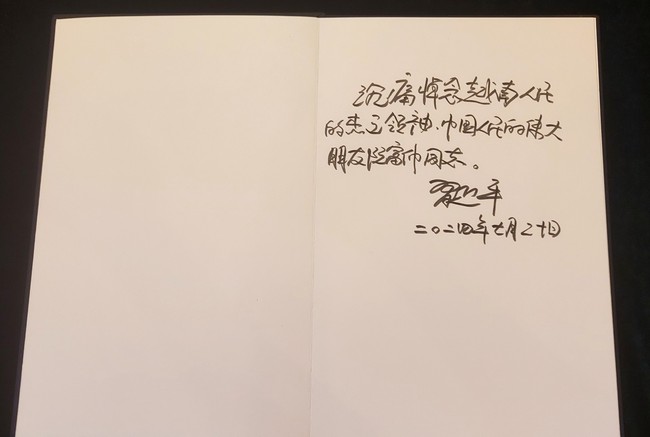 沉痛悼念越南人民
的杰出领袖、中国人民的伟大
朋友阮富仲同志。
習近平
二〇二四年七月二十日